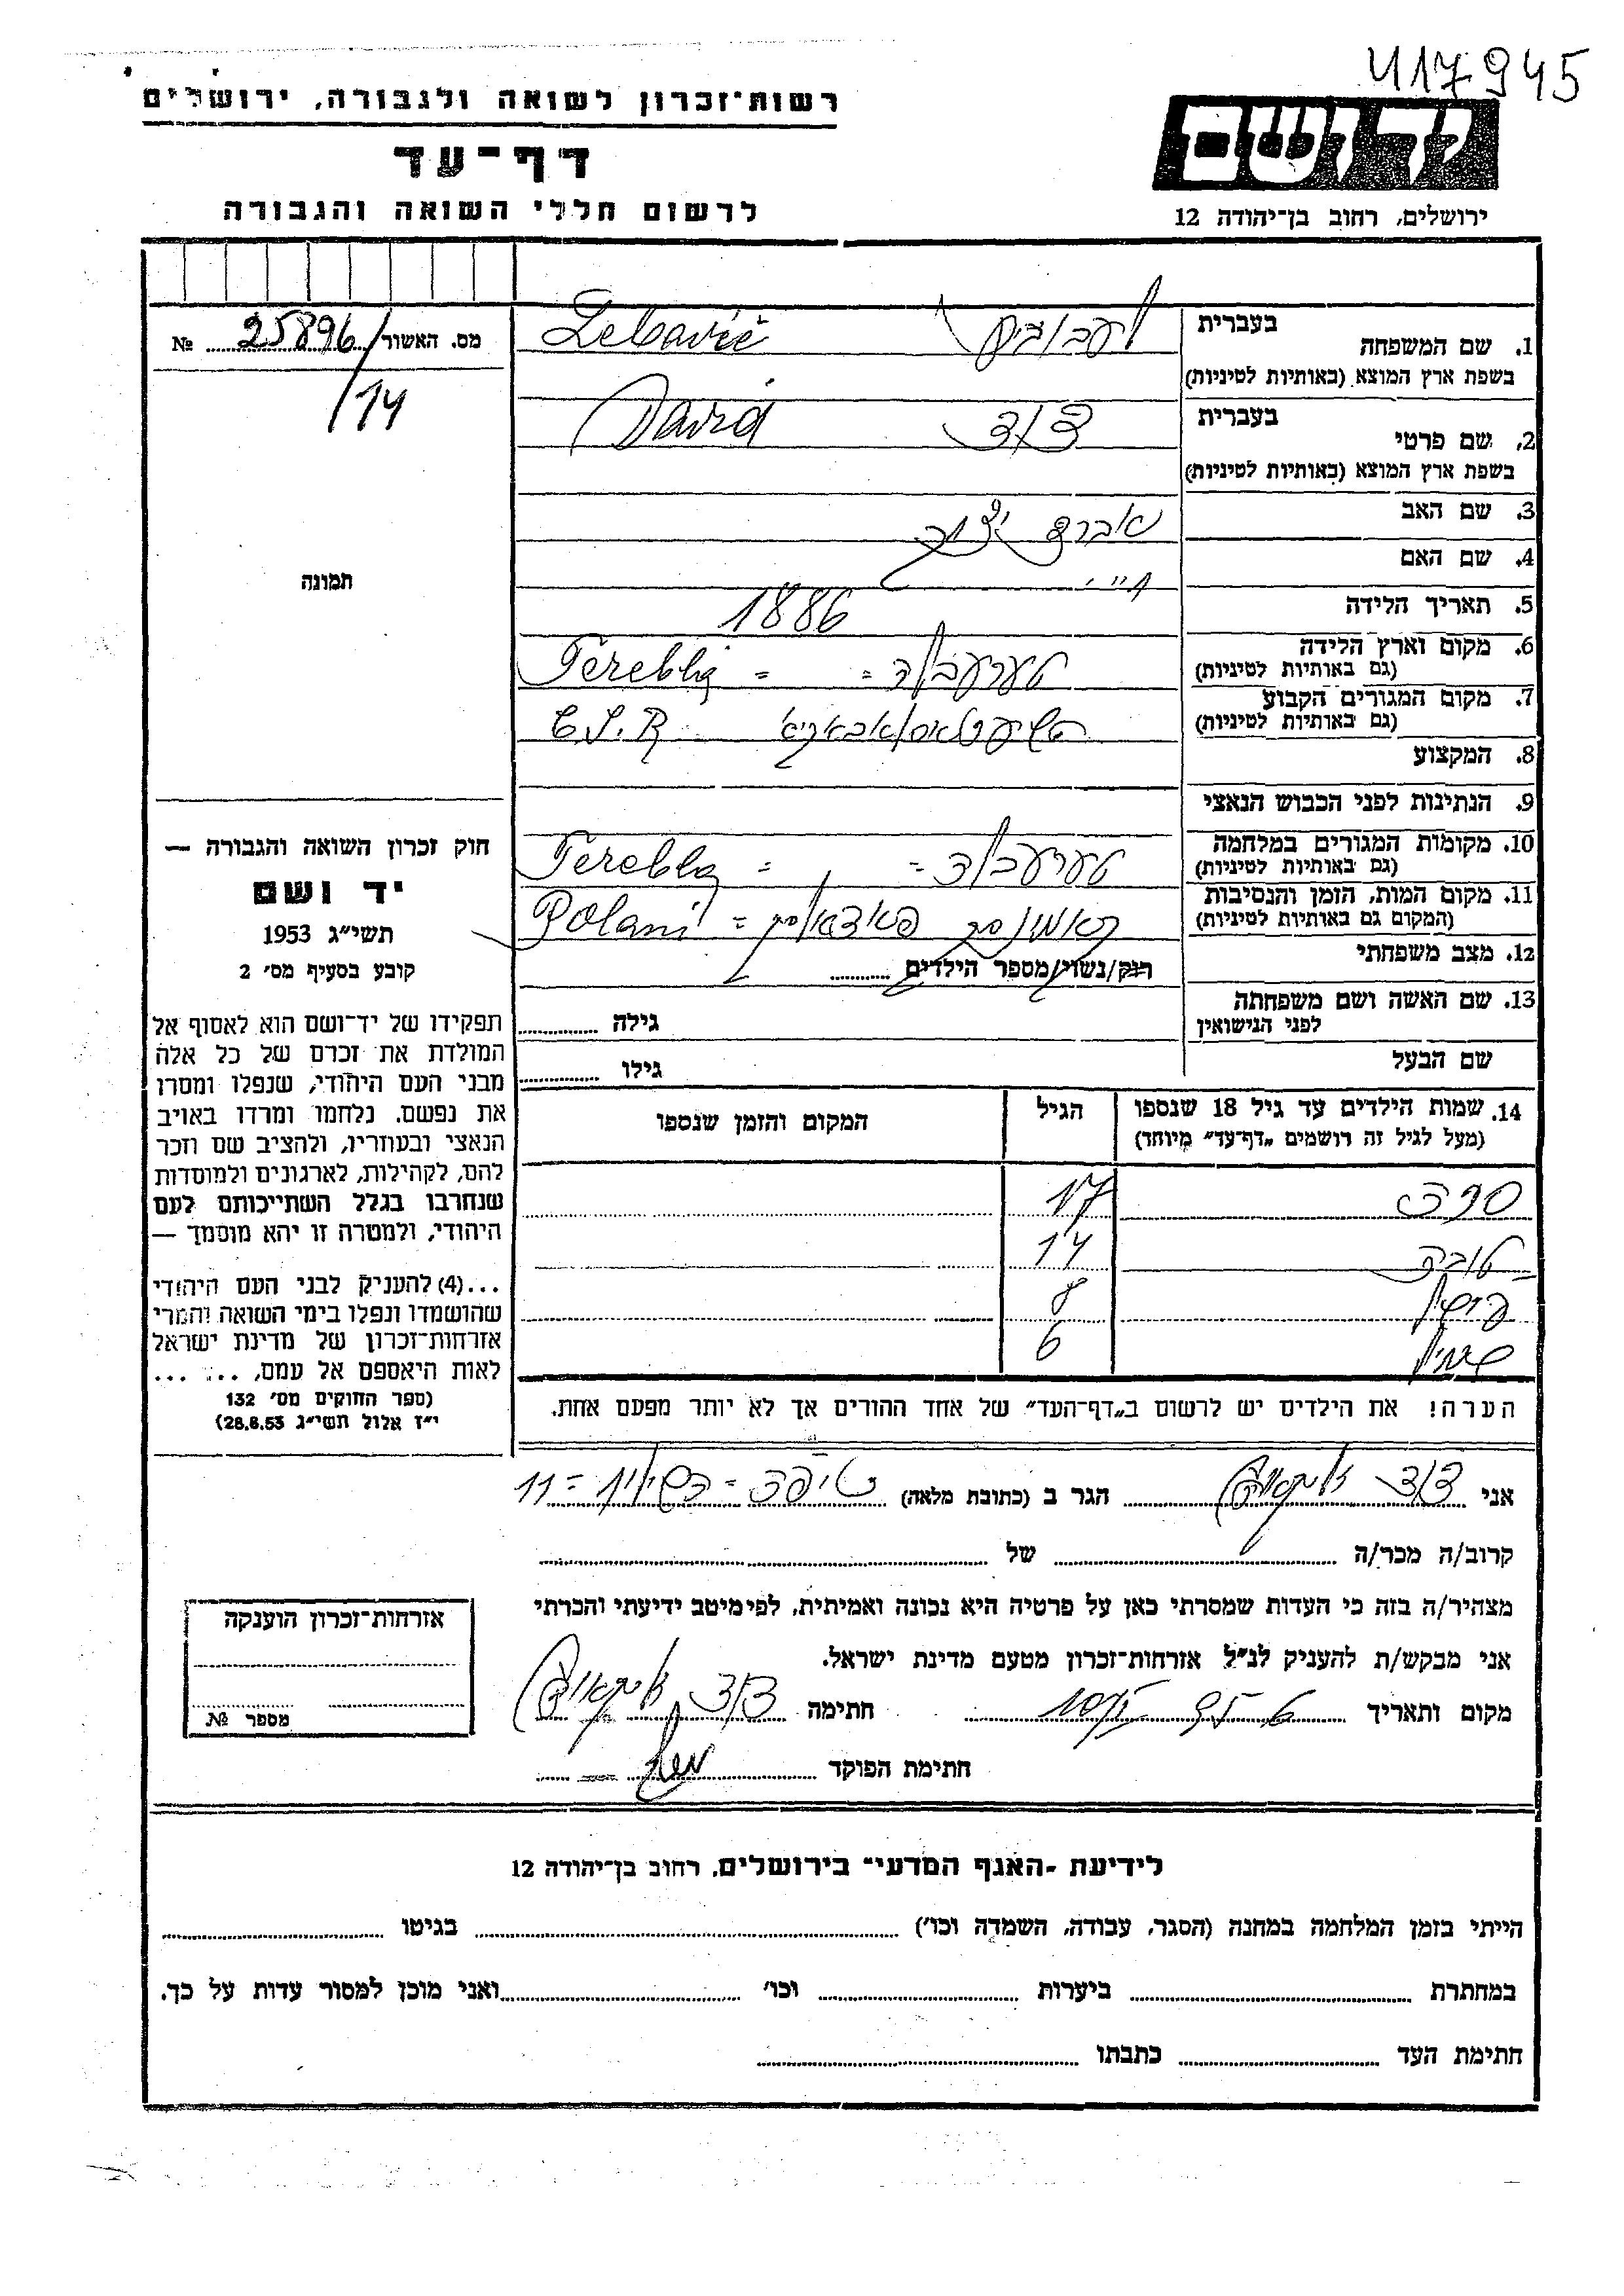 417945
רשות-זכרון לשואה ולגבורה, ירושלים
דף-עד
לרשום חללי השואה והגבורה
ידושם
ירושלים, רחוב בן-יהודה 12
מס. האשור 25896/14 №
תמונה
חוק זכרון השואה והגבורה —
יד ושם
תשי״ג 1953
קובע בסעיף מס׳ 2
תפקידו של יד-ושם הוא לאסוף אל
המולדת את זכרם של כל אלה
מבני העם היהודי, שנפלו ומסרו
את נפשם. נלחמו ומרדו באויב
הנאצי ובעוזריו, ולהציב שם וזכר
להם, לקהילות, לארגונים ולמוסדות
שנחרבו בגלל השתייכותם לעם
היהודי, ולמטרה זו יהא מוסמך —
...(4) להעניק לבני העם היהודי
שהושמדו ונפלו בימי השואה והמרי
אזרחות-זכרון של מדינת ישראל
לאות היאספם אל עמם, ... ...
(ספר החוקים מס׳ 132
י״ז אלול תשי״ג 28.8.53)
1. שם המשפחה בעברית לעבוביץ Lebovič
בשפת ארץ המוצא (באותיות לטיניות)
2. שם פרטי בעברית דוד David
בשפת ארץ המוצא (באותיות לטיניות)
3. שם האב אברהם יצחק
4. שם האם
5. תאריך הלידה 1886
6. מקום וארץ הלידה טערעבלה = = Terebla
(גם באותיות לטיניות)
7. מקום המגורים הקבוע C.S.R
(גם באותיות לטיניות)
8. המקצוע
9. הנתינות לפני הכבוש הנאצי
10. מקומות המגורים במלחמה טערעבלה = = Terebla
(גם באותיות לטיניות)
11. מקום המות, הזמן והנסיבות קאמענסק פאדאלסק = Polani
(המקום גם באותיות לטיניות)
12. מצב משפחתי רוק/נשוי/מספר הילדים
13. שם האשה ושם משפחתה גילה
לפני הנישואין
שם הבעל גילו
14. שמות הילדים עד גיל 18 שנספו הגיל המקום והזמן שנספו
(מעל לגיל זה רושמים „דף-עד״ מיוחד)
17
טובה 14
8
6
הערה! את הילדים יש לרשום ב„דף-העד״ של אחד ההורים אך לא יותר מפעם אחת.
אני דוד הגר ב (כתובת מלאה) חיפה = השילוח = 11
קרוב/ה מכר/ה של
מצהיר/ה בזה כי העדות שמסרתי כאן על פרטיה היא נכונה ואמיתית, לפי מיטב ידיעתי והכרתי
אני מבקש/ת להעניק לנ״ל אזרחות-זכרון מטעם מדינת ישראל.
מקום ותאריך חתימה דוד
חתימת הפוקד
אזרחות-זכרון הוענקה
מספר №
לידיעת -האגף המדעי״ בירושלים, רחוב בן-יהודה 12
הייתי בזמן המלחמה במחנה (הסגר, עבודה, השמדה וכו׳) בגיטו
במחתרת ביערות וכו׳ ואני מוכן למסור עדות על כך.
חתימת העד כתבתו